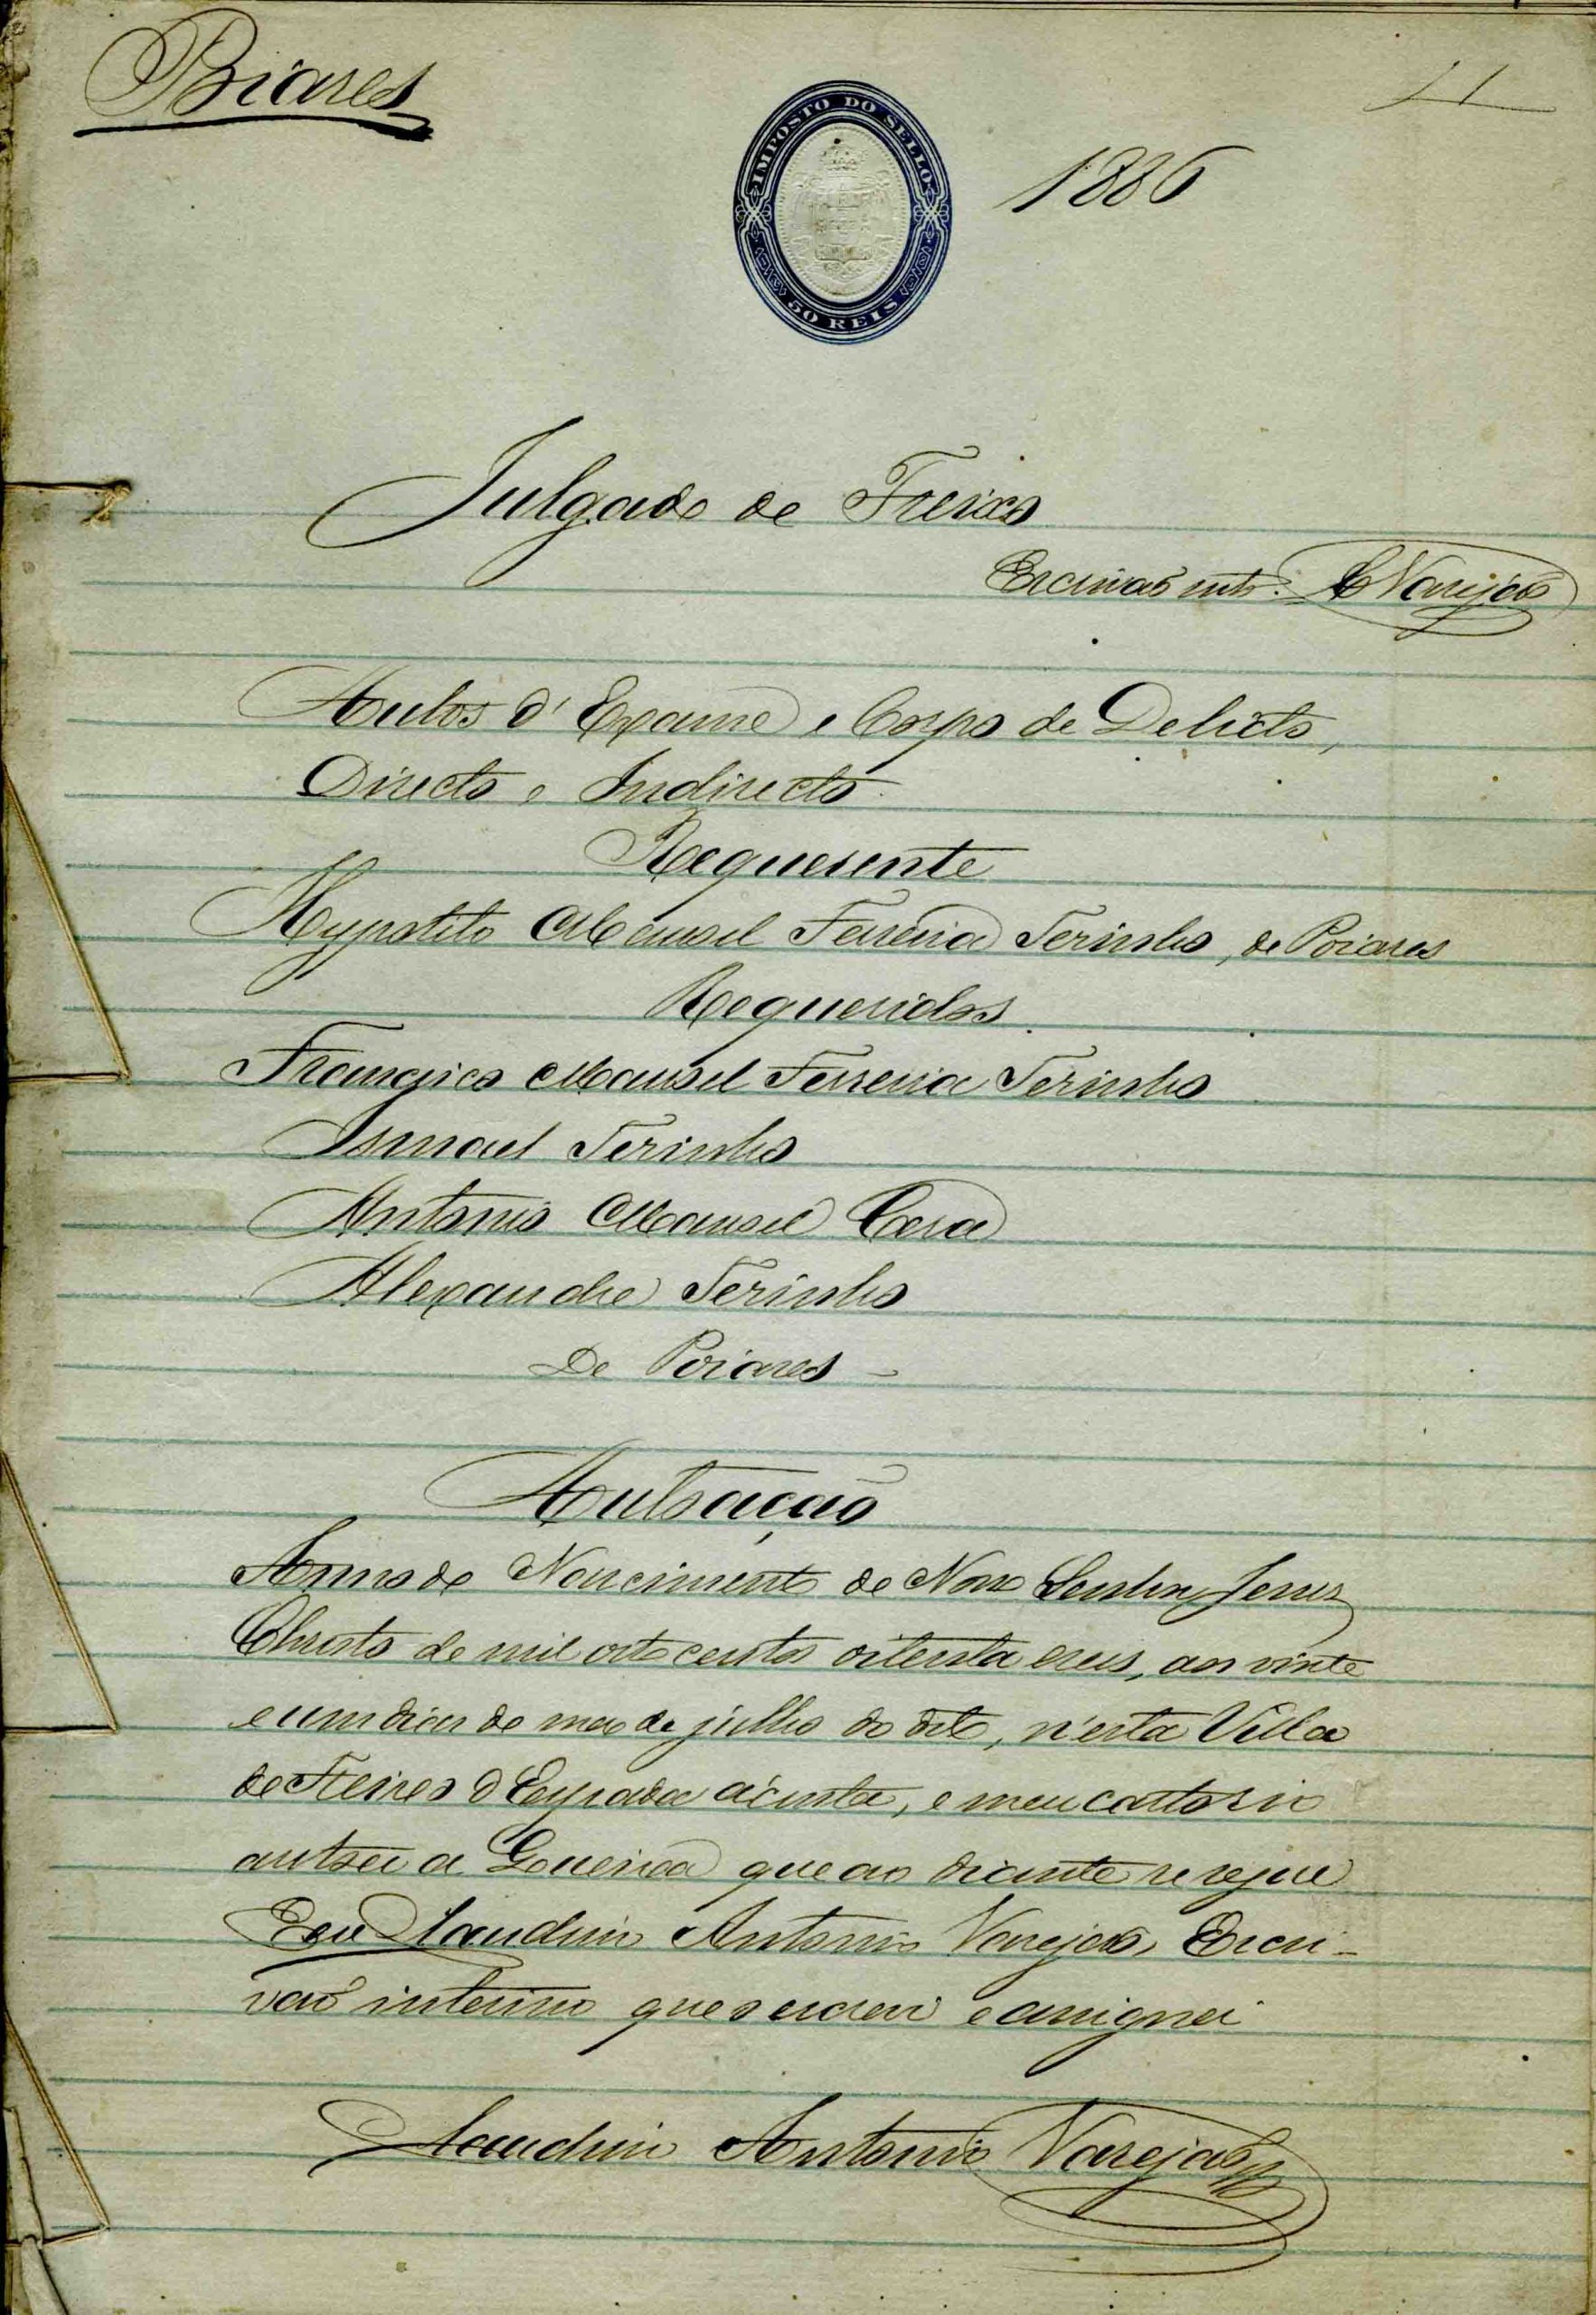 Poiares
1
IMPOSTO DO SELLO
50 REIS
1886
Julgado de Freixo
Escrivão intr.º Varejão
Autos d'Exame e Corpo de Delicto,
Directo e Indirecto
Requerente
Hypolito Manoel Ferreira Terinho, de Poiares
Requeridos
Francisco Manoel Ferreira Terinho
Ismael Terinho
Antonio Manoel
Alexandre Terinho
De Poiares
Autoação
Anno do Nascimento de Nosso Senhor Jesus
Christo de mil oito centos oitenta e seis, aos vinte
e um dias do mez de julho do dito, n'esta Villa
de Freixo d'Espada á cinta, e meu cartorio
autoei a que ao diante se segue
Eu Antonio Varejão, Escri-
vão interino que o escrevi e assignei
Antonio Varejão